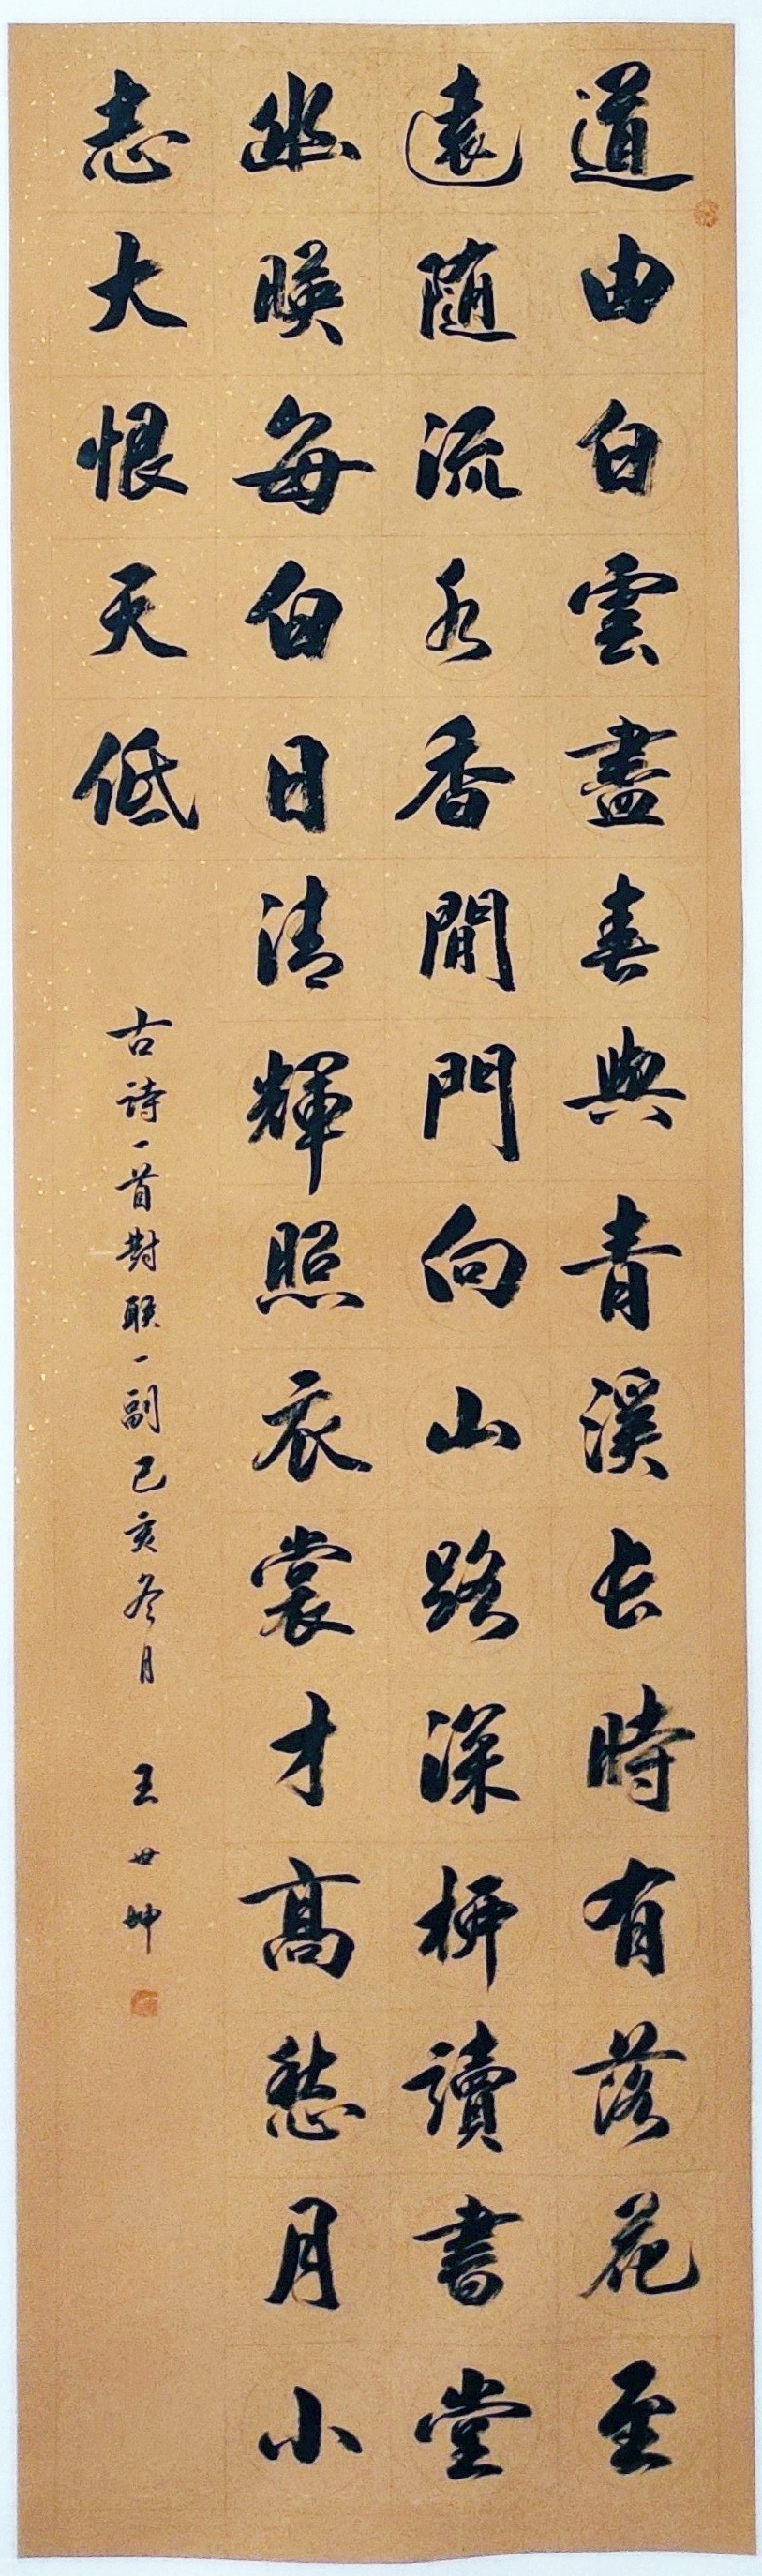 道由白雲盡春與青溪長時有落花至
遠隨流水香閒門向山路深柳讀書堂
幽暎每白日清輝照衣裳才高愁月小
志大恨天低
古詩一首對联一副己亥冬月 王世坤